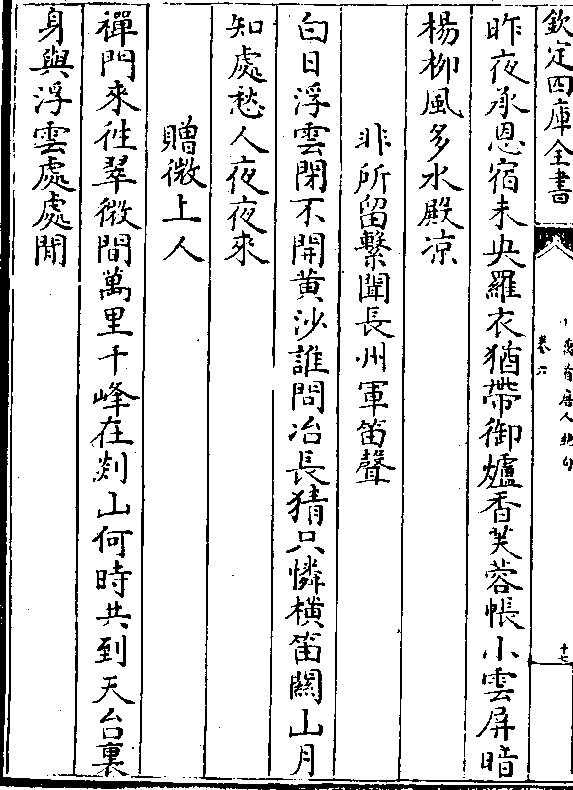 欽定四庫全書
萬首唐人絶句
卷六
十七
昨夜承恩宿未央羅衣猶帶御爐香芙蓉帳小雲屏暗
楊栁風多水殿凉
非所留繫聞長州軍笛聲
白日浮雲閉不開黄沙誰問冶長猜只憐横笛關山月
知處愁人夜夜來
贈微上人
禪門來徃翠微間萬里千峰在剡山何時共到天台裏
身與浮雲處處閒